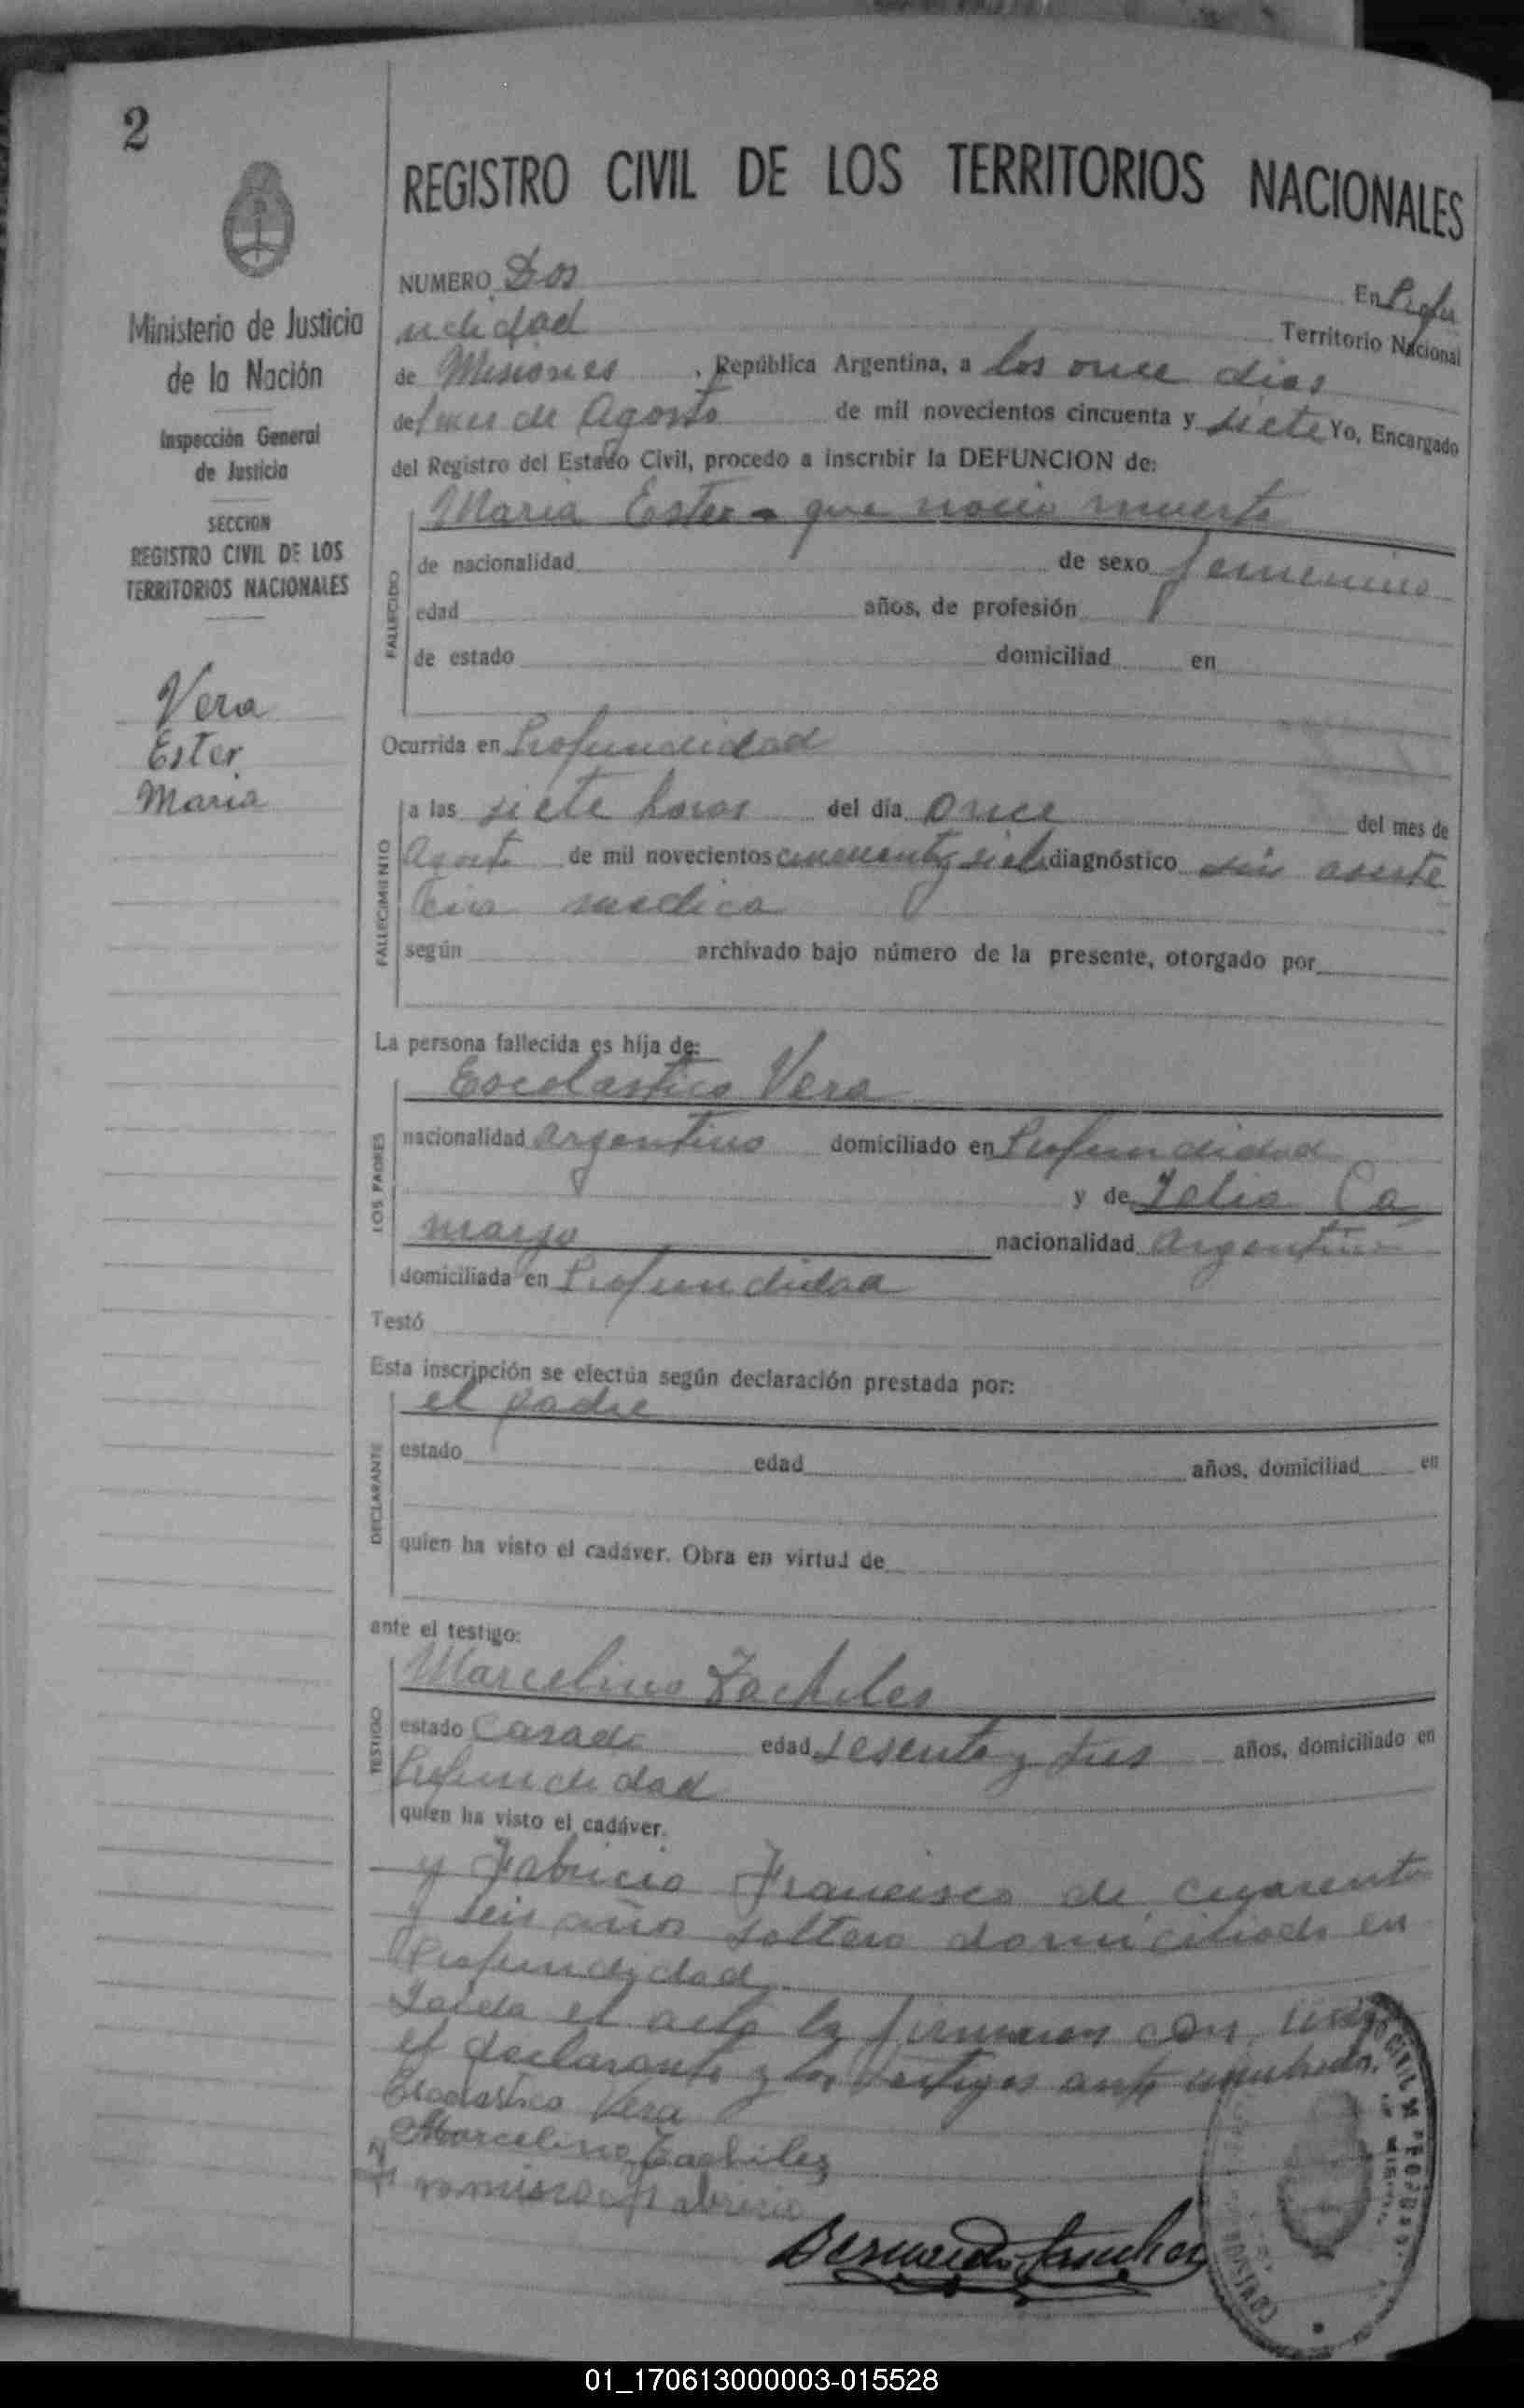 2
REGISTRO CIVIL DE LOS TERRITORIOS NACIONALES
Ministerio de Justicia
de la Nación
Inspección General
de Justicia
SECCION
REGISTRO CIVIL DE LOS
TERRITORIOS NACIONALES
Vera
Ester
Maria
NUMERO Dos
En Profu
ndidad Territorio Nacional
de Misiones , República Argentina, a los once dias
del mes de Agosto de mil novecientos cincuenta y siete Yo, Encargado
del Registro del Estado Civil, procedo a inscribir la DEFUNCION de:
Maria Ester - que nacio muerta
FALLECIDO
de nacionalidad de sexo femenino
edad años, de profesión
de estado domiciliad en
Ocurrida en Profundidad
FALLECIMIENTO
a las siete horas del día once del mes de
Agosto de mil novecientos cincuenta y siete diagnóstico sin asiste
cia medica
según archivado bajo número de la presente, otorgado por
La persona fallecida es hija de:
LOS PADRES
Escolastico Vera
nacionalidad argentino domiciliado en Profundidad
y de Celia Ca
margo nacionalidad Argentina
domiciliada en Profundidad
Testó
Esta inscripción se efectúa según declaración prestada por:
DECLARANTE
el padre
estado edad años, domiciliad en
quien ha visto el cadáver. Obra en virtud de
ante el testigo:
TESTIGO
Marcelino
estado Casado edad sesenta y tres años, domiciliado en
Profundidad
quien ha visto el cadáver.
y Fabricio Francisco de cuarenta
y seis años soltero domiciliado en
Profundidad
Leida el acta la firmaron con migo
el declarante y los testigos
Escolastico Vera
Marcelino
Fabricio
Bernardo Sanchez
01_170613000003-015528